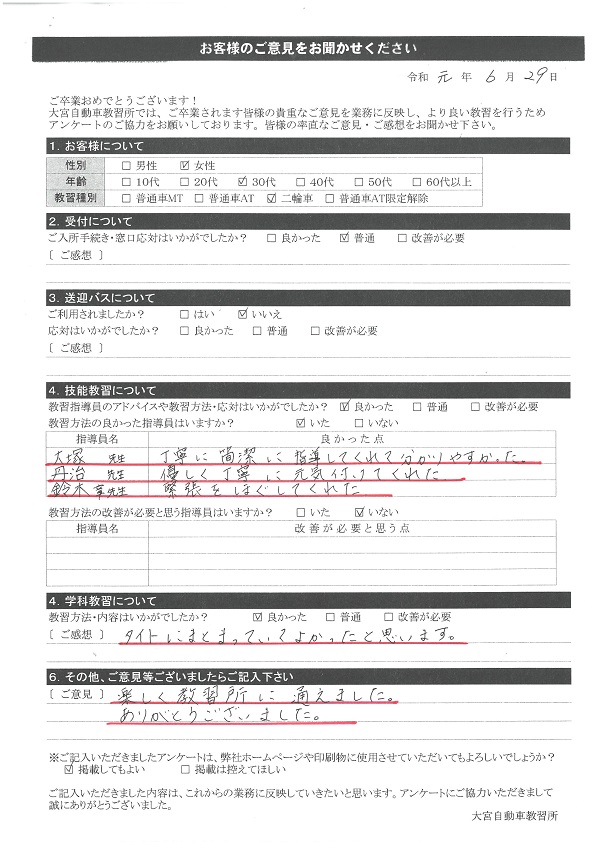 お客様のご意見をお聞かせください
令和 元 年 6 月 29 日
ご卒業おめでとうございます！
大宮自動車教習所では、ご卒業されます皆様の貴重なご意見を業務に反映し、より良い教習を行うため
アンケートのご協力をお願いしております。皆様の率直なご意見・ご感想をお聞かせ下さい。
1. お客様について
性別 □ 男性 ☑ 女性
年齢 □ 10代 □ 20代 ☑ 30代 □ 40代 □ 50代 □ 60代以上
教習種別 □ 普通車MT □ 普通車AT ☑ 二輪車 □ 普通車AT限定解除
2. 受付について
ご入所手続き・窓口応対はいかがでしたか？ □ 良かった ☑ 普通 □ 改善が必要
〔 ご感想 〕
3. 送迎バスについて
ご利用されましたか？ □ はい ☑ いいえ
応対はいかがでしたか？ □ 良かった □ 普通 □ 改善が必要
〔 ご感想 〕
4. 技能教習について
教習指導員のアドバイスや教習方法・応対はいかがでしたか？ ☑ 良かった □ 普通 □ 改善が必要
教習方法の良かった指導員はいますか？ ☑ いた □ いない
指導員名 良かった点
大塚 先生 丁寧に簡潔に指導してくれて分かりやすかった。
丹治 先生 優しく丁寧に元気付けてくれた
鈴木 先生 緊張をほぐしてくれた
教習方法の改善が必要と思う指導員はいますか？ □ いた ☑ いない
指導員名 改善が必要と思う点
4. 学科教習について
教習方法・内容はいかがでしたか？ ☑ 良かった □ 普通 □ 改善が必要
〔 ご感想 〕 タイトにまとまっていてよかったと思います。
6. その他、ご意見等ございましたらご記入下さい
〔 ご意見 〕 楽しく教習所に通えました。
ありがとうございました。
※ご記入いただきましたアンケートは、弊社ホームページや印刷物に使用させていただいてもよろしいでしょうか？
☑ 掲載してもよい □ 掲載は控えてほしい
ご記入いただきました内容は、これからの業務に反映していきたいと思います。アンケートにご協力いただきまして
誠にありがとうございました。
大宮自動車教習所